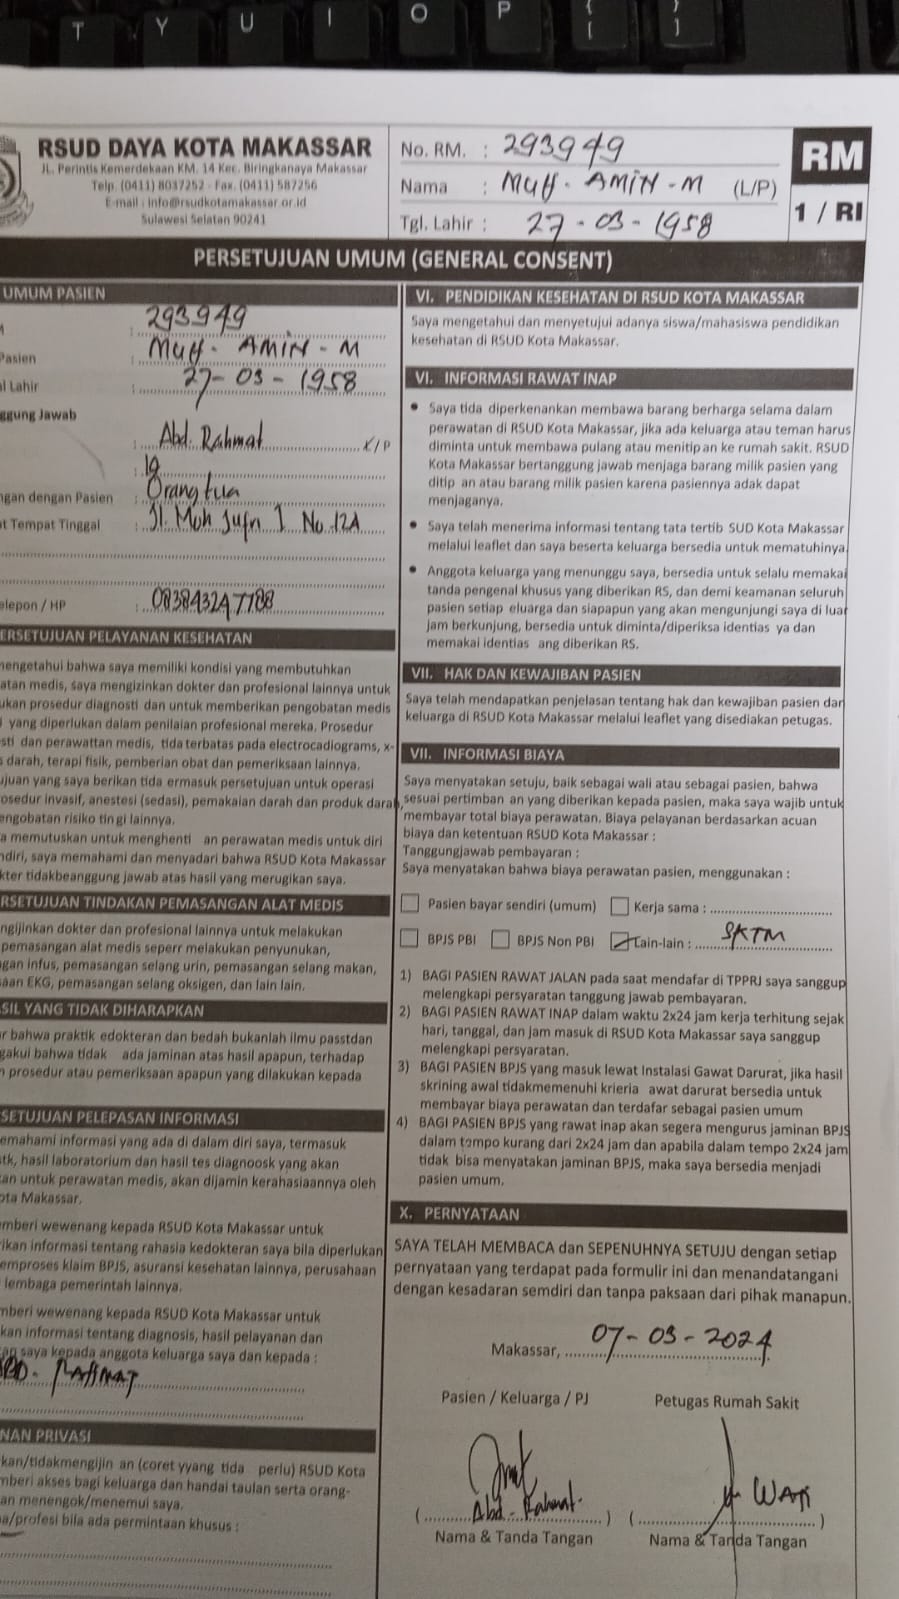 T Y U I O P { [ } ]
RSUD DAYA KOTA MAKASSAR
JL. Perintis Kemerdekaan KM. 14 Kec. Biringkanaya Makassar
Telp. (0411) 8037252 - Fax. (0411) 587256
E-mail : info@rsudkotamakassar.or.id
Sulawesi Selatan 90241
No. RM. : 293949
Nama : MUH. AMIN-M (L/P)
Tgl. Lahir : 27-03-1958
RM
1 / RI
PERSETUJUAN UMUM (GENERAL CONSENT)
UMUM PASIEN
: 293949
Pasien : MUH. AMIN-M
Lahir : 27-03-1958
ggung Jawab
: Abd. Rahmat /P
: 19
ngan dengan Pasien : Orang tua
t Tempat Tinggal : Jl. Moh Jufri I No.12A
elepon / HP : 083843247788
ERSETUJUAN PELAYANAN KESEHATAN
mengetahui bahwa saya memiliki kondisi yang membutuhkan
atan medis, saya mengizinkan dokter dan profesional lainnya untuk
ukan prosedur diagnosti dan untuk memberikan pengobatan medis
i yang diperlukan dalam penilaian profesional mereka. Prosedur
sti dan perawattan medis, tida terbatas pada electrocadiograms, x-
s darah, terapi fisik, pemberian obat dan pemeriksaan lainnya.
ujuan yang saya berikan tida ermasuk persetujuan untuk operasi
osedur invasif, anestesi (sedasi), pemakaian darah dan produk darah,
engobatan risiko tin gi lainnya.
a memutuskan untuk menghenti an perawatan medis untuk diri
ndiri, saya memahami dan menyadari bahwa RSUD Kota Makassar
kter tidakbeanggung jawab atas hasil yang merugikan saya.
RSETUJUAN TINDAKAN PEMASANGAN ALAT MEDIS
ngijinkan dokter dan profesional lainnya untuk melakukan
pemasangan alat medis seperr melakukan penyunukan,
gan infus, pemasangan selang urin, pemasangan selang makan,
saan EKG, pemasangan selang oksigen, dan lain lain.
SIL YANG TIDAK DIHARAPKAN
r bahwa praktik edokteran dan bedah bukanlah ilmu passtdan
gakui bahwa tidak ada jaminan atas hasil apapun, terhadap
n prosedur atau pemeriksaan apapun yang dilakukan kepada
SETUJUAN PELEPASAN INFORMASI
emahami informasi yang ada di dalam diri saya, termasuk
stk, hasil laboratorium dan hasil tes diagnoosk yang akan
kan untuk perawatan medis, akan dijamin kerahasiaannya oleh
ota Makassar.
mberi wewenang kepada RSUD Kota Makassar untuk
rikan informasi tentang rahasia kedokteran saya bila diperlukan
emproses klaim BPJS, asuransi kesehatan lainnya, perusahaan
lembaga pemerintah lainnya.
mberi wewenang kepada RSUD Kota Makassar untuk
kan informasi tentang diagnosis, hasil pelayanan dan
an saya kepada anggota keluarga saya dan kepada :
BD. RAHMAT
NAN PRIVASI
kan/tidakmengijin an (coret yyang tida perlu) RSUD Kota
mberi akses bagi keluarga dan handai taulan serta orang-
an menengok/menemui saya.
na/profesi bila ada permintaan khusus :
VI. PENDIDIKAN KESEHATAN DI RSUD KOTA MAKASSAR
Saya mengetahui dan menyetujui adanya siswa/mahasiswa pendidikan
kesehatan di RSUD Kota Makassar.
VI. INFORMASI RAWAT INAP
• Saya tida diperkenankan membawa barang berharga selama dalam
perawatan di RSUD Kota Makassar, jika ada keluarga atau teman harus
diminta untuk membawa pulang atau menitip an ke rumah sakit. RSUD
Kota Makassar bertanggung jawab menjaga barang milik pasien yang
ditip an atau barang milik pasien karena pasiennya adak dapat
menjaganya.
• Saya telah menerima informasi tentang tata tertib SUD Kota Makassar
melalui leaflet dan saya beserta keluarga bersedia untuk mematuhinya.
• Anggota keluarga yang menunggu saya, bersedia untuk selalu memakai
tanda pengenal khusus yang diberikan RS, dan demi keamanan seluruh
pasien setiap eluarga dan siapapun yang akan mengunjungi saya di luar
jam berkunjung, bersedia untuk diminta/diperiksa identias ya dan
memakai identias ang diberikan RS.
VII. HAK DAN KEWAJIBAN PASIEN
Saya telah mendapatkan penjelasan tentang hak dan kewajiban pasien dan
keluarga di RSUD Kota Makassar melalui leaflet yang disediakan petugas.
VII. INFORMASI BIAYA
Saya menyatakan setuju, baik sebagai wali atau sebagai pasien, bahwa
sesuai pertimban an yang diberikan kepada pasien, maka saya wajib untuk
membayar total biaya perawatan. Biaya pelayanan berdasarkan acuan
biaya dan ketentuan RSUD Kota Makassar :
Tanggungjawab pembayaran :
Saya menyatakan bahwa biaya perawatan pasien, menggunakan :
Pasien bayar sendiri (umum) Kerja sama :
BPJS PBI BPJS Non PBI Lain-lain : SKTM
1) BAGI PASIEN RAWAT JALAN pada saat mendafar di TPPRJ saya sanggup
melengkapi persyaratan tanggung jawab pembayaran.
2) BAGI PASIEN RAWAT INAP dalam waktu 2x24 jam kerja terhitung sejak
hari, tanggal, dan jam masuk di RSUD Kota Makassar saya sanggup
melengkapi persyaratan.
3) BAGI PASIEN BPJS yang masuk lewat Instalasi Gawat Darurat, jika hasil
skrining awal tidakmemenuhi krieria awat darurat bersedia untuk
membayar biaya perawatan dan terdafar sebagai pasien umum
4) BAGI PASIEN BPJS yang rawat inap akan segera mengurus jaminan BPJS
dalam tempo kurang dari 2x24 jam dan apabila dalam tempo 2x24 jam
tidak bisa menyatakan jaminan BPJS, maka saya bersedia menjadi
pasien umum.
X. PERNYATAAN
SAYA TELAH MEMBACA dan SEPENUHNYA SETUJU dengan setiap
pernyataan yang terdapat pada formulir ini dan menandatangani
dengan kesadaran semdiri dan tanpa paksaan dari pihak manapun.
Makassar, 07-03-2024
Pasien / Keluarga / PJ Petugas Rumah Sakit
( Abd. Rahmat ) ( WATI )
Nama & Tanda Tangan Nama & Tanda Tangan